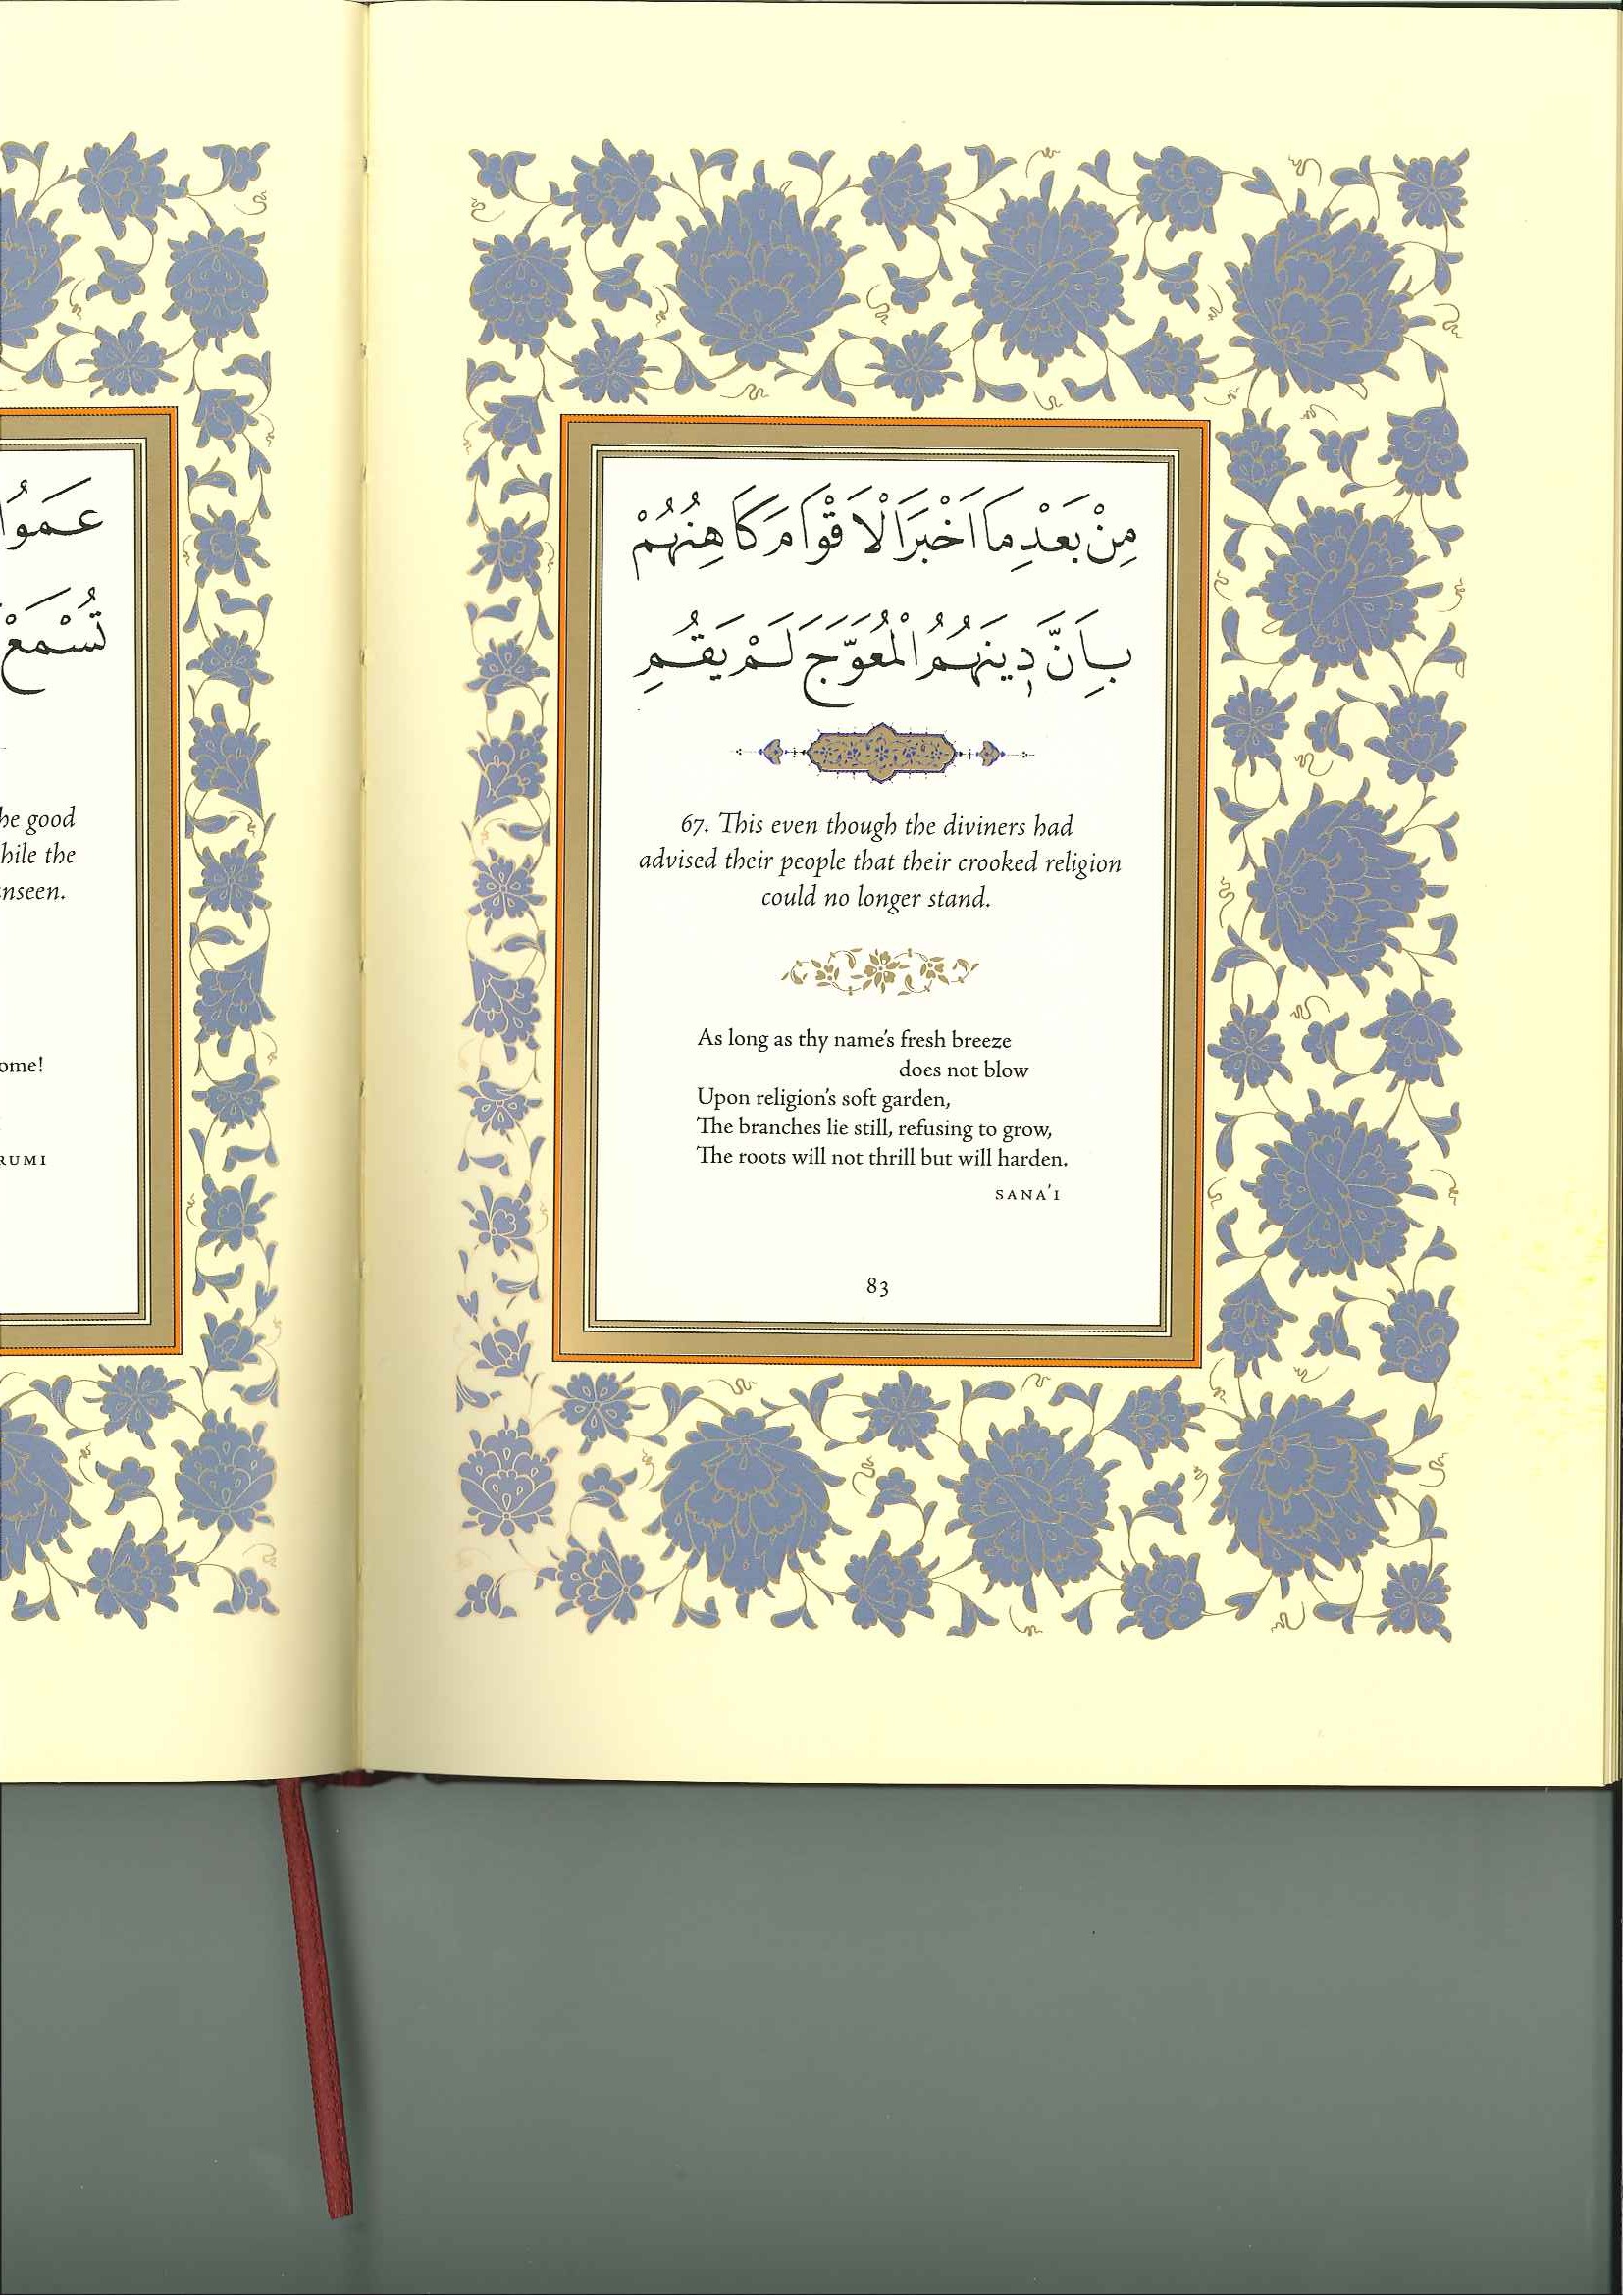 عَمُوا
تُسْمَعْ
he good
hile the
nseen.
ome!
RUMI
مِنْ بَعْدِ مَا اَخْبَرَ الْاَقْوَامَ كَاهِنُهُمْ
بِاَنَّ دِينَهُمُ الْمُعْوَجَّ لَمْ يَقُمِ
67. This even though the diviners had
advised their people that their crooked religion
could no longer stand.
As long as thy name's fresh breeze
does not blow
Upon religion's soft garden,
The branches lie still, refusing to grow,
The roots will not thrill but will harden.
SANA'I
83